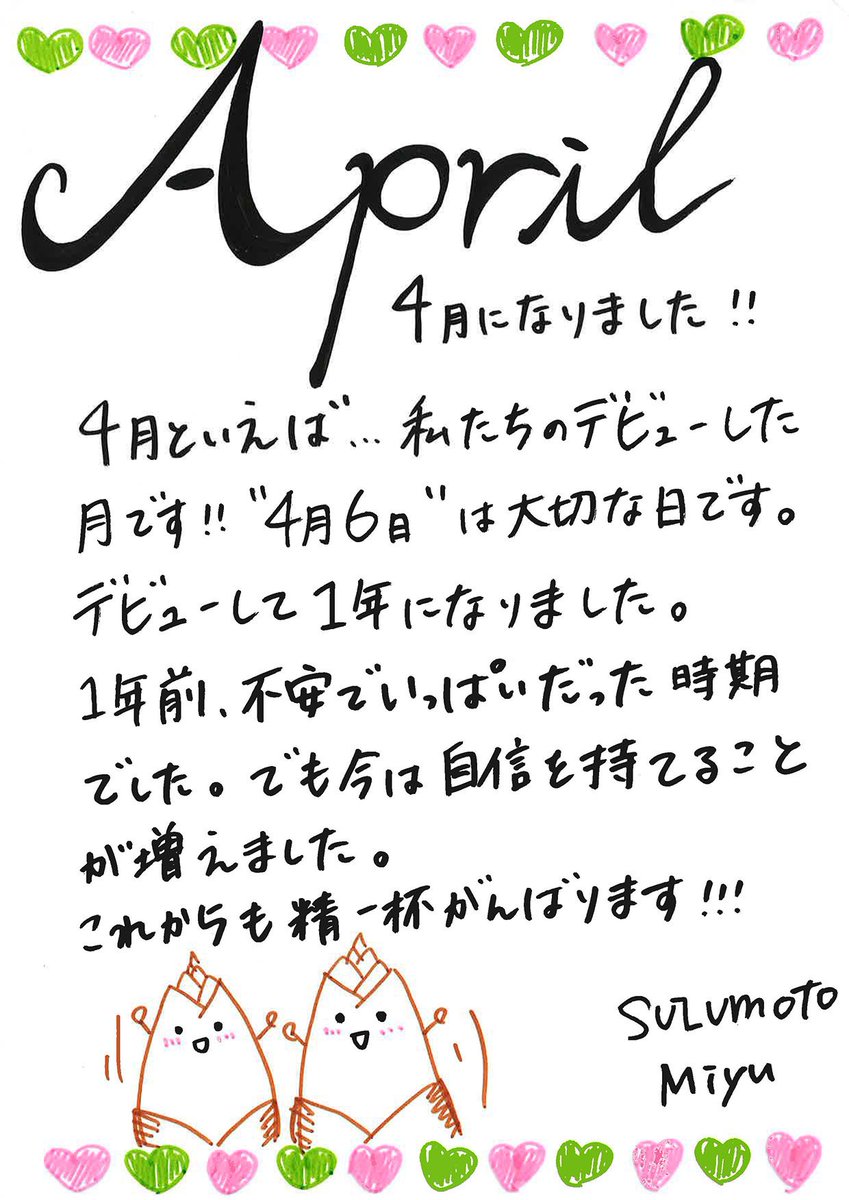 April
4月になりました!!
4月といえば…私たちのデビューした
月です!!"4月6日"は大切な日です。
デビューして1年になりました。
1年前、不安でいっぱいだった時期
でした。でも今は自信を持てること
が増えました。
これからも精一杯がんばります!!!
SUZUMOTO
MiYU